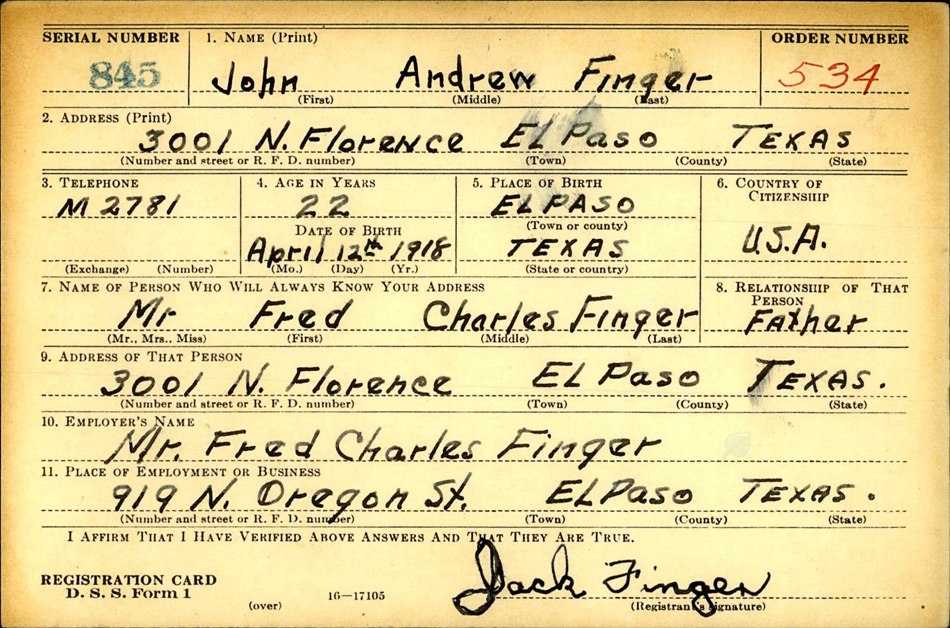 SERIAL NUMBER 1. NAME (Print) ORDER NUMBER
845 John Andrew Finger 534
(First) (Middle) (Last)
2. ADDRESS (Print)
3001 N. Florence El Paso TEXAS
(Number and street or R. F. D. number) (Town) (County) (State)
3. TELEPHONE 4. AGE IN YEARS 5. PLACE OF BIRTH 6. COUNTRY OF CITIZENSHIP
M 2781 22 EL PASO
(Town or county)
DATE OF BIRTH U.S.A.
April 12th 1918 TEXAS
(Exchange) (Number) (Mo.) (Day) (Yr.) (State or country)
7. NAME OF PERSON WHO WILL ALWAYS KNOW YOUR ADDRESS 8. RELATIONSHIP OF THAT PERSON
Mr Fred Charles Finger Father
(Mr., Mrs., Miss) (First) (Middle) (Last)
9. ADDRESS OF THAT PERSON
3001 N. Florence El Paso TEXAS.
(Number and street or R. F. D. number) (Town) (County) (State)
10. EMPLOYER'S NAME
Mr. Fred Charles Finger
11. PLACE OF EMPLOYMENT OR BUSINESS
919 N. Oregon St. El Paso TEXAS.
(Number and street or R. F. D. number) (Town) (County) (State)
I AFFIRM THAT I HAVE VERIFIED ABOVE ANSWERS AND THAT THEY ARE TRUE.
Jack Finger
REGISTRATION CARD
D. S. S. Form 1
(over) 16-17105 (Registrant's signature)